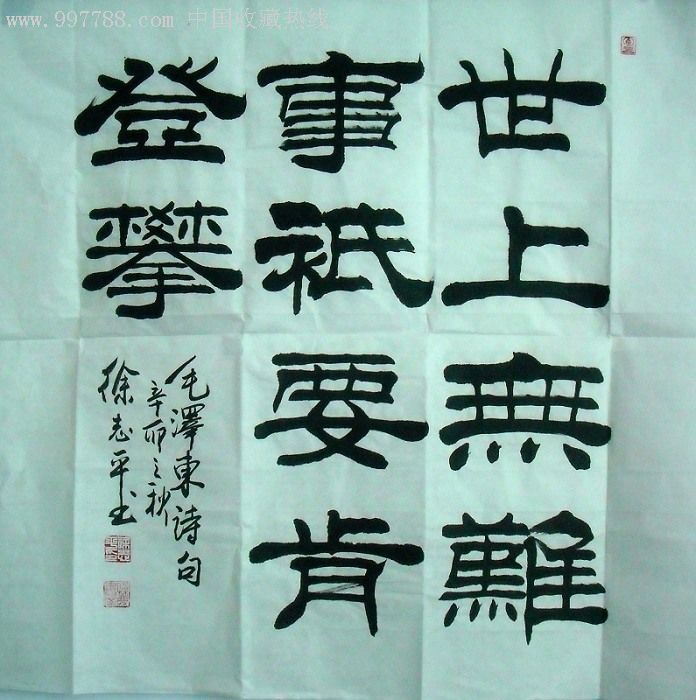 www.997788.com 中国收藏热线
世上無難
事祇要肯
登攀
毛澤東詩句
辛卯之秋
徐志平书